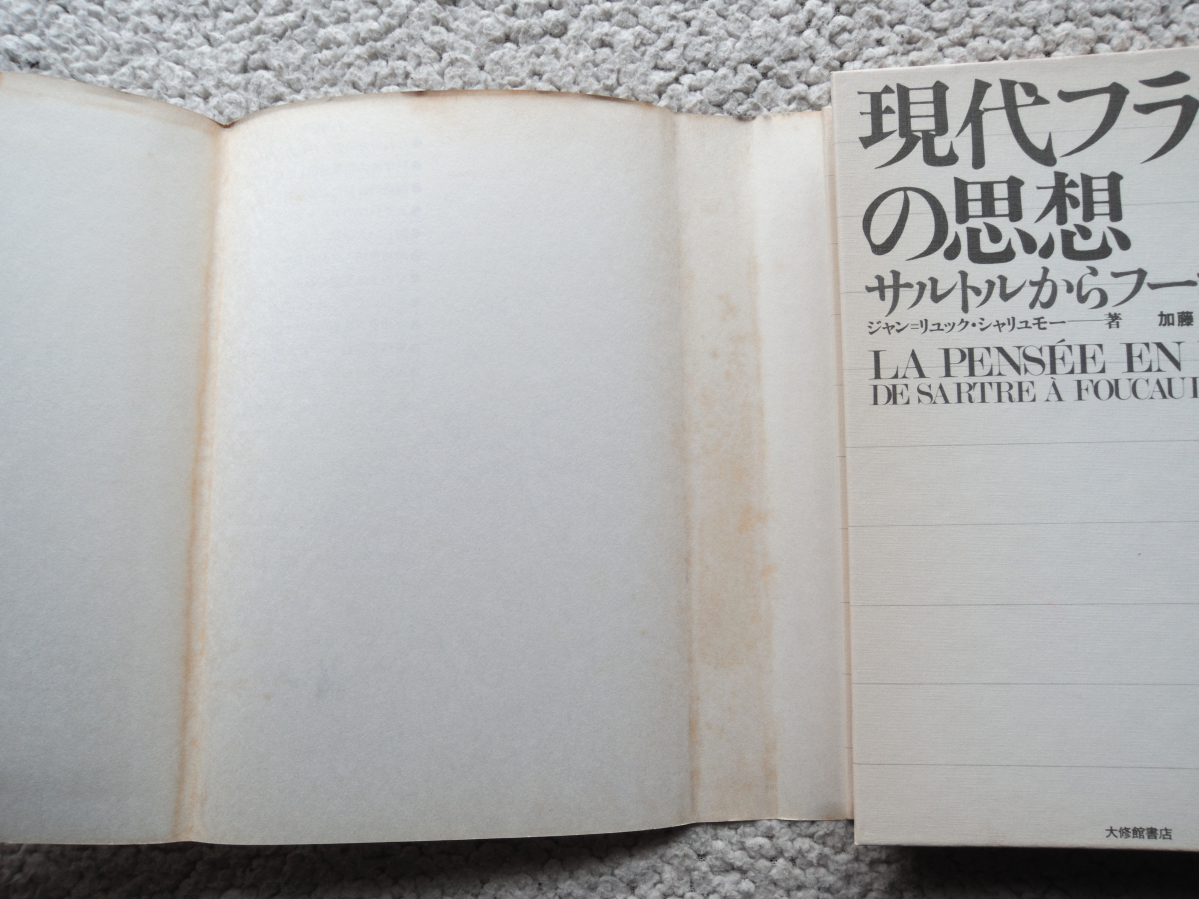 現代フラ
の思想
サルトルからフー
ジャン=リュック・シャリュモー――著 加藤
LA PENSÉE EN
DE SARTRE À FOUCAUL
大修館書店